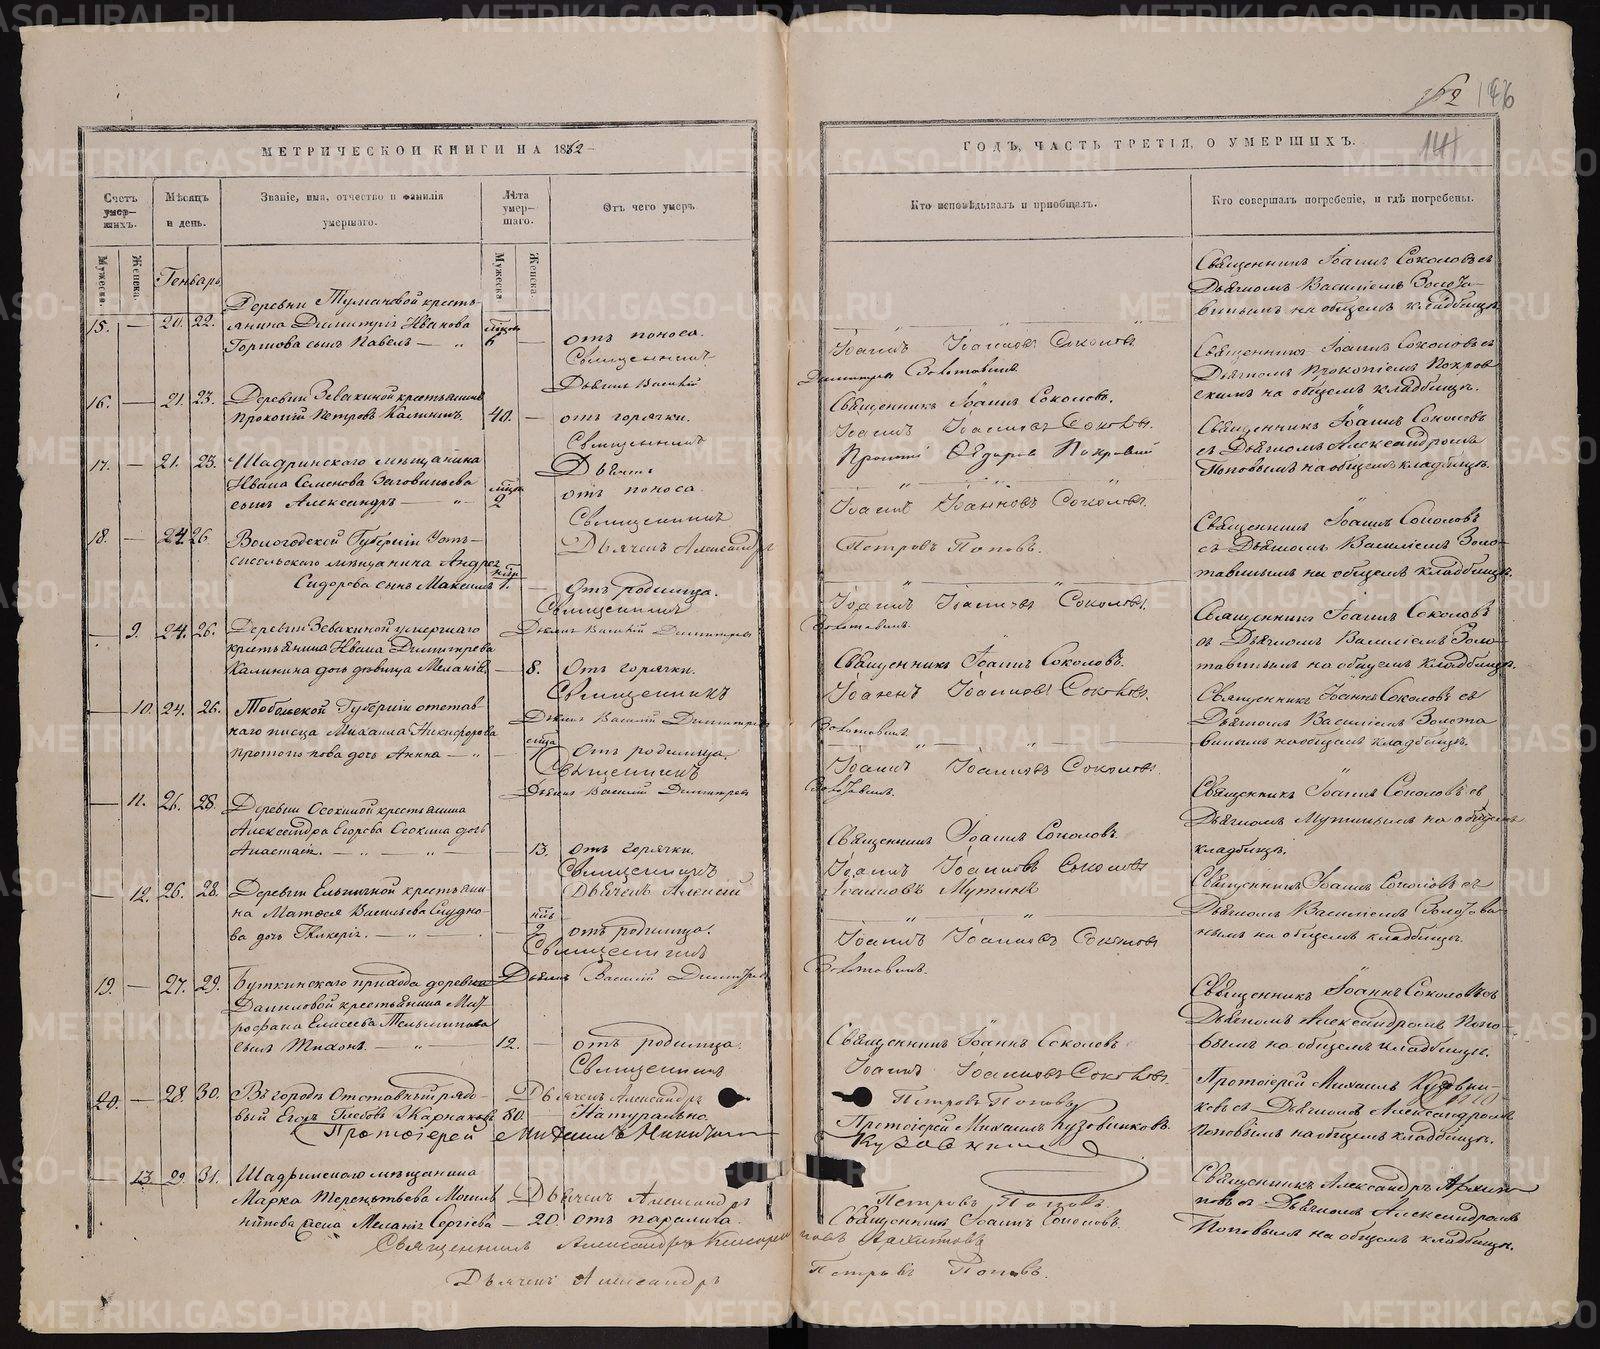 МЕТРИЧЕСКОЙ КНИГИ НА 1862
Счетъ умер-шихъ.
Мѣсяцъ и день.
Званіе, имя, отчество и фамилія умершаго.
Лѣта умер-шаго.
Отъ чего умеръ.
Мужеска.
Женска.
Мужеска
Женска.
Генварь
Деревни Тумановой кресть-
15. — 20. 22. янина Димитрія Иванова мѣсяц.
Горшова сынъ Павелъ — „ 6 — отъ поноса.
Священникъ
Дьячекъ Василій
16. — 21. 23. Деревни Зевакиной крестьянинъ
Прокопій Петровъ Калининъ. 40. — отъ горячки.
Священникъ
17. — 21. 23. Шадринскаго мѣщанина Дьячекъ
Ивана Семенова
сынъ Александръ — „ 2 отъ поноса.
Священникъ
18. — 24. 26. Вологодской Губерніи Усть- Дьячекъ Александръ
сысольскаго мѣщанина Андрея
Сидорова сынъ Максимъ 1. — Отъ родимца.
Священникъ
— 9. 24. 26. Деревни Зевакиной умершаго Дьячекъ Василій Димитріевъ
крестьянина Ивана Димитріева
Калинина дочь дѣвица Меланія. — 8. Отъ горячки.
Священникъ
— 10. 24. 26. Тобольской Губерніи отстав- Дьячекъ Василій Димитріевъ
наго писца Михаила Никифорова
Протопопова дочь Анна — „ Отъ родимца.
Священникъ
— 11. 26. 28. Деревни Осокиной крестьянина Дьячекъ Василій Димитріевъ
Александра Егорова Осокина дочь
Анастасія. — „ — „ — 13. отъ горячки.
Священникъ
— 12. 26. 28. Деревни Ельничной крестьяни- Дьячекъ Алексій
на Матвея Васильева
ва дочь Гликерія. — „ — 2. отъ родимца.
Священникъ
19. — 27. 29. Буткинскаго прихода деревни Дьячекъ Василій Димитріевъ
Даниловой крестьянина Мит-
рофана Елисеева
сынъ Тихонъ. — „ — 12. — отъ родимца.
Священникъ
20. — 28. 30. Въ городѣ Отставный рядо- Дьячекъ Александръ
вый Егоръ Глебовъ 80. — Натурально.
Протоіерей Михаилъ
— 13. 29. 31. Шадринскаго мѣщанина
Марка Терентьева Дьячекъ Александръ
жена Меланія Сергіева — 20. отъ паралича.
Священникъ Александръ
Дьячекъ Александръ
146
141
ГОДЪ, ЧАСТЬ ТРЕТІЯ, О УМЕРШИХЪ.
Кто исповѣдывалъ и пріобщалъ.
Кто совершалъ погребеніе, и гдѣ погребены.
Іоаннъ Іоанновъ Соколовъ
Золотавинъ
Священникъ Іоаннъ Соколовъ.
Іоаннъ Іоанновъ Соколовъ.
Покровскій
Іоаннъ Іоанновъ Соколовъ.
Петровъ Поповъ.
Іоаннъ Іоанновъ Соколовъ.
Золотавинъ.
Священникъ Іоаннъ Соколовъ.
Іоаннъ Іоанновъ Соколовъ.
Золотавинъ
Іоаннъ Іоанновъ Соколовъ.
Золотавинъ.
Священникъ Іоаннъ Соколовъ.
Іоаннъ Іоанновъ Соколовъ
Іоанновъ Мутинъ
Іоаннъ Іоанновъ Соколовъ
Золотавинъ.
Священникъ Іоаннъ Соколовъ
Іоаннъ Іоанновъ Соколовъ.
Петровъ Поповъ
Протоіерей Михаилъ Кузовниковъ.
Кузовниковъ
Петровъ Поповъ.
Священникъ Іоаннъ Соколовъ.
Архиповъ
Петровъ Поповъ.
Священникъ Іоаннъ Соколовъ съ
Дьячкомъ Василіемъ Золота-
винымъ на общемъ кладбищѣ.
Священникъ Іоаннъ Соколовъ съ
Дьячкомъ Прокопіемъ Покров
скимъ на общемъ кладбищѣ.
Священникъ Іоаннъ Соколовъ
съ Дьячкомъ Александромъ
Поповымъ на общемъ кладбищѣ.
Священникъ Іоаннъ Соколовъ
съ Дьячкомъ Василіемъ Золо-
тавинымъ на общемъ кладбищѣ.
Священникъ Іоаннъ Соколовъ
съ Дьячкомъ Василіемъ Золо-
тавинымъ на общемъ кладбищѣ.
Священникъ Іоаннъ Соколовъ съ
Дьячкомъ Василіемъ Золота
винымъ на общемъ кладбищѣ.
Священникъ Іоаннъ Соколовъ съ
Дьячкомъ Мутинымъ на общемъ
кладбищѣ.
Священникъ Іоаннъ Соколовъ съ
Дьячкомъ Василіемъ Золотави-
нымъ на общемъ кладбищѣ.
Священникъ Іоаннъ Соколовъ съ
Дьячкомъ Александромъ Попо-
вымъ на общемъ кладбищѣ.
Протоіерей Михаилъ Кузовни-
ковъ съ Дьячкомъ Александромъ
Поповымъ на общемъ кладбищѣ.
Священникъ Александръ Архи
повъ съ Дьячкомъ Александромъ
Поповымъ на общемъ кладбищѣ.
METRIKI.GASO-URAL.RU